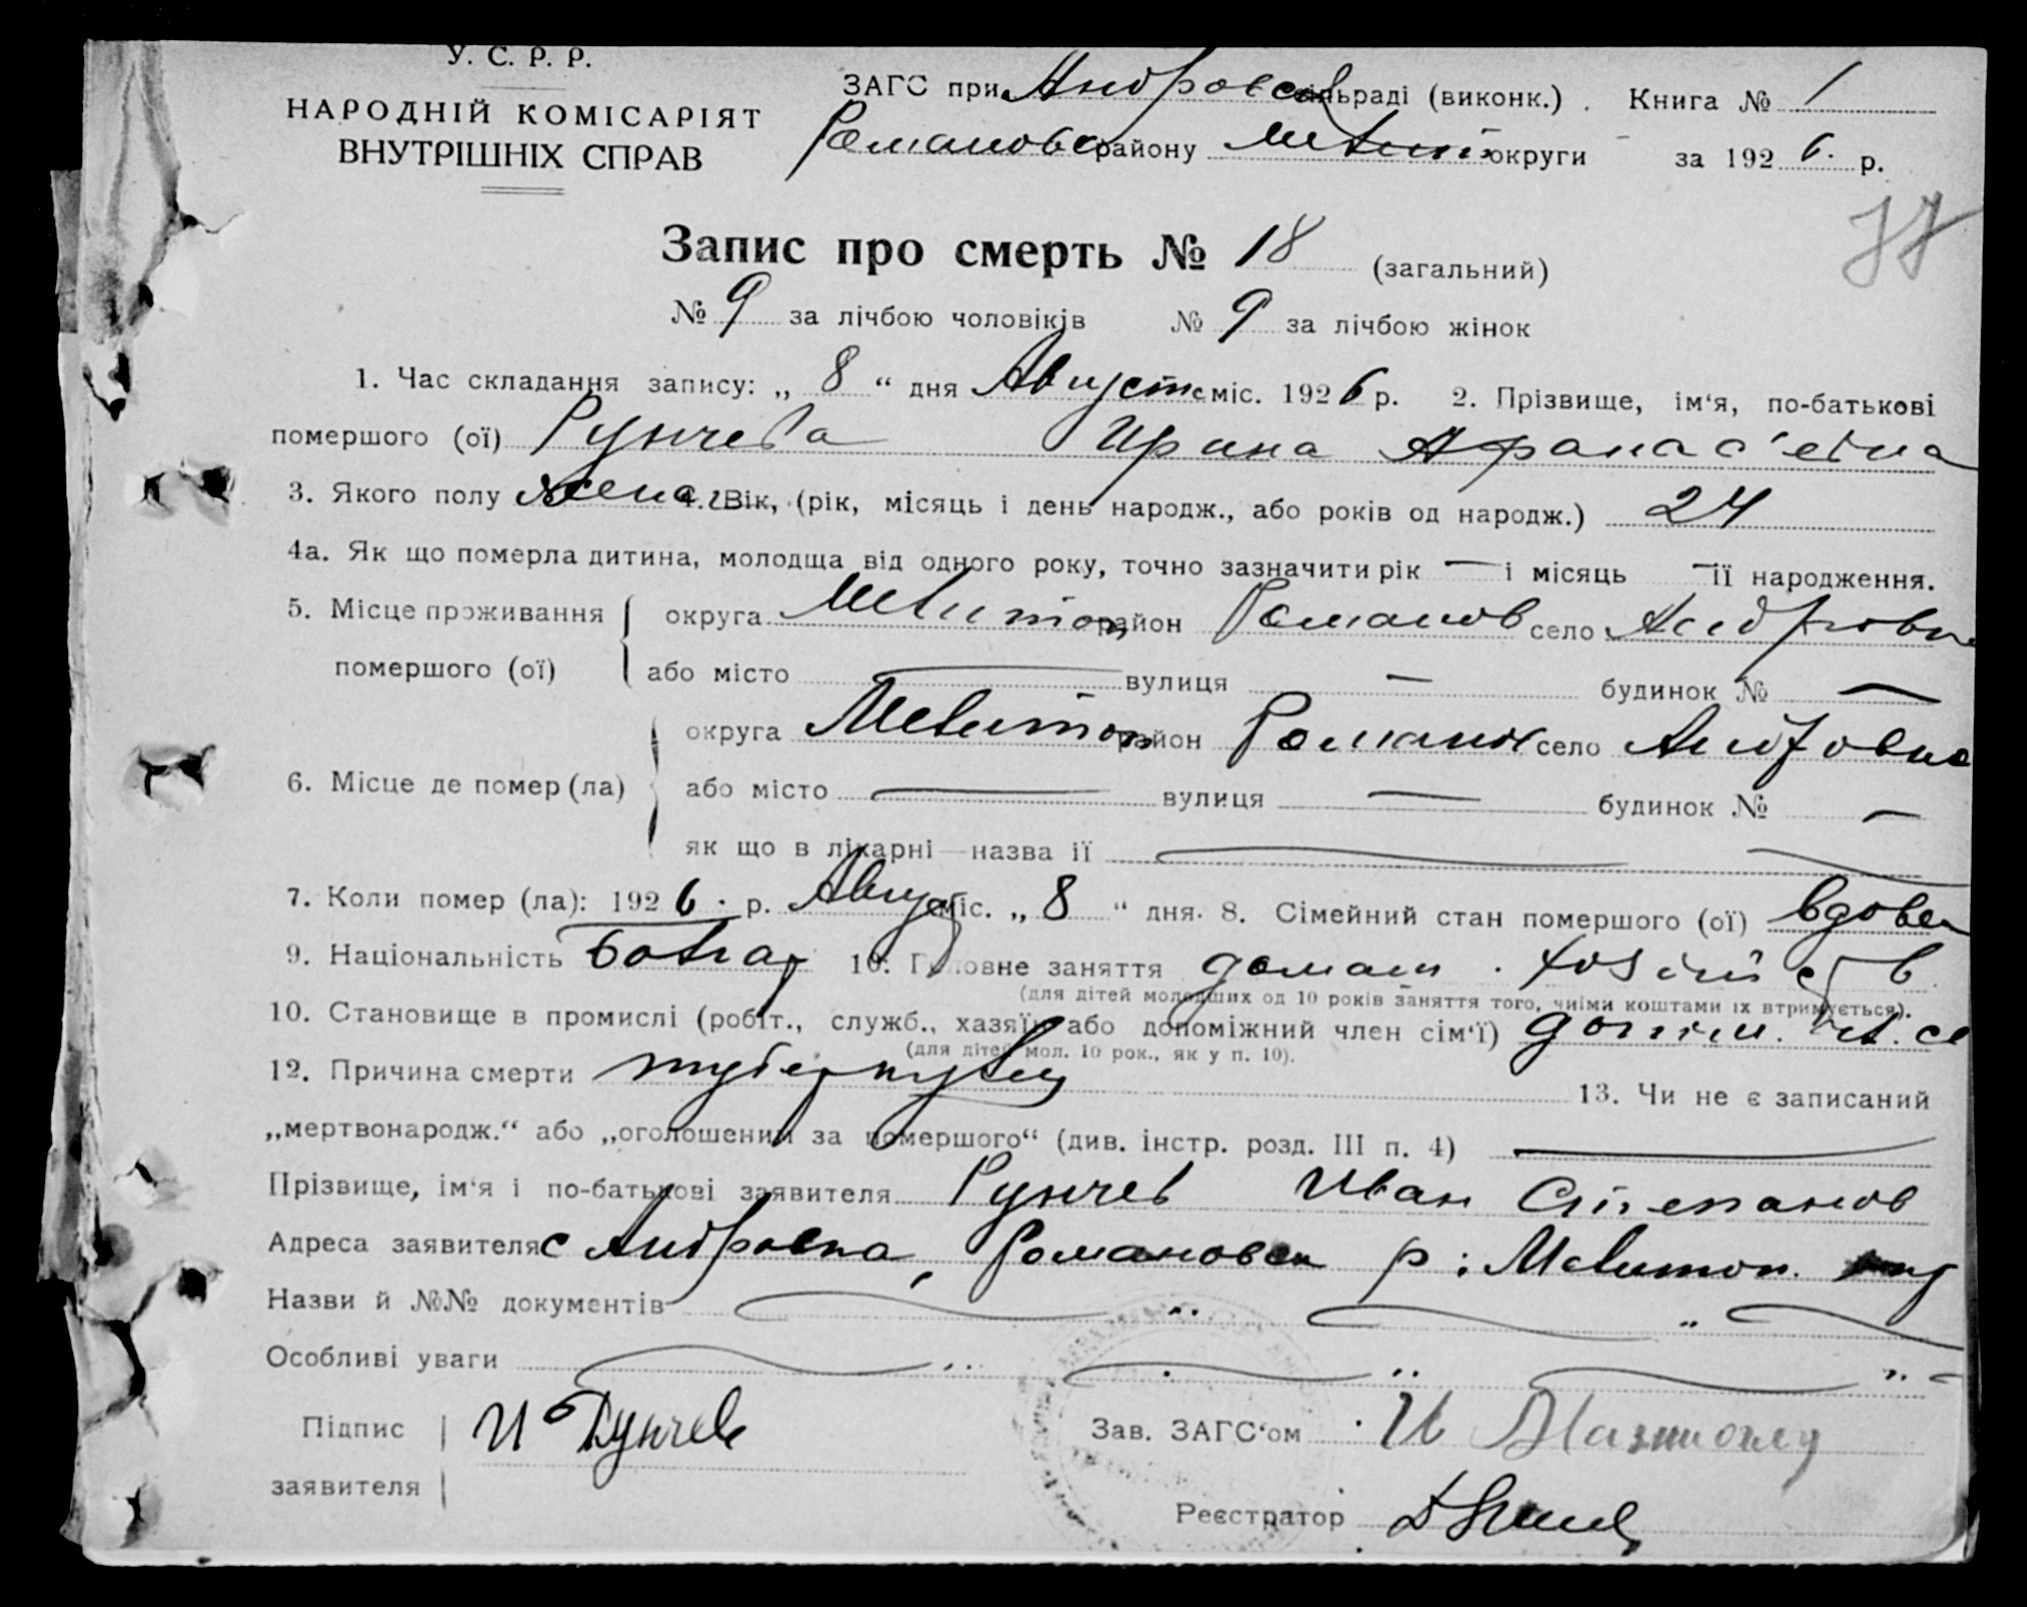 У. С. Р. Р.
НАРОДНІЙ КОМІСАРІЯТ
ВНУТРІШНІХ СПРАВ
ЗАГС при Андровс сільраді (виконк.) . Книга № 1
Романовс району Меліт округи за 192 6. р.
77
Запис про смерть № 18 (загальний)
№ 9 за лічбою чоловіків № 9 за лічбою жінок
1. Час складання запису: „ 8 “ дня Августа міс. 192 6 р. 2. Прізвище, ім‘я, по-батькові
помершого (ої) Рунчева Ирина Афанас'евна
3. Якого полу жена 4. Вік, (рік, місяць і день народж., або років од народж.) 24
4а. Як що померла дитина, молодща від одного року, точно зазначити рік — і місяць — її народження.
5. Місце проживання помершого (ої) округа Мелитоп район Романов село Андровна
або місто — вулиця — будинок № —
6. Місце де помер (ла) округа Мелитоп район Романов село Андровна
або місто — вулиця — будинок № —
як що в лікарні—назва її —
7. Коли помер (ла): 192 6 . р. Август міс. „ 8 “ дня. 8. Сімейний стан помершого (ої) вдова
9. Національність болгар 10. Головне заняття домаш.
(для дітей молодших од 10 років заняття того, чиїми коштами їх втримується).
10. Становище в промислі (робіт., служб., хазяїн або допоміжний член сім‘ї)
(для дітей мол. 10 рок., як у п. 10).
12. Причина смерти туберкулез
13. Чи не є записаний
„мертвонародж.“ або „оголошений за помершого“ (див. інстр. розд. III п. 4) —
Прізвище, ім‘я і по-батькові заявителя Рунчев Иван Степанов
Адреса заявителя с Андровна, Романовск р: Мелитоп.
Назви й №№ документів
Особливі уваги
Підпис заявителя И Рунчев
Зав. ЗАГС‘ом И
Реєстратор